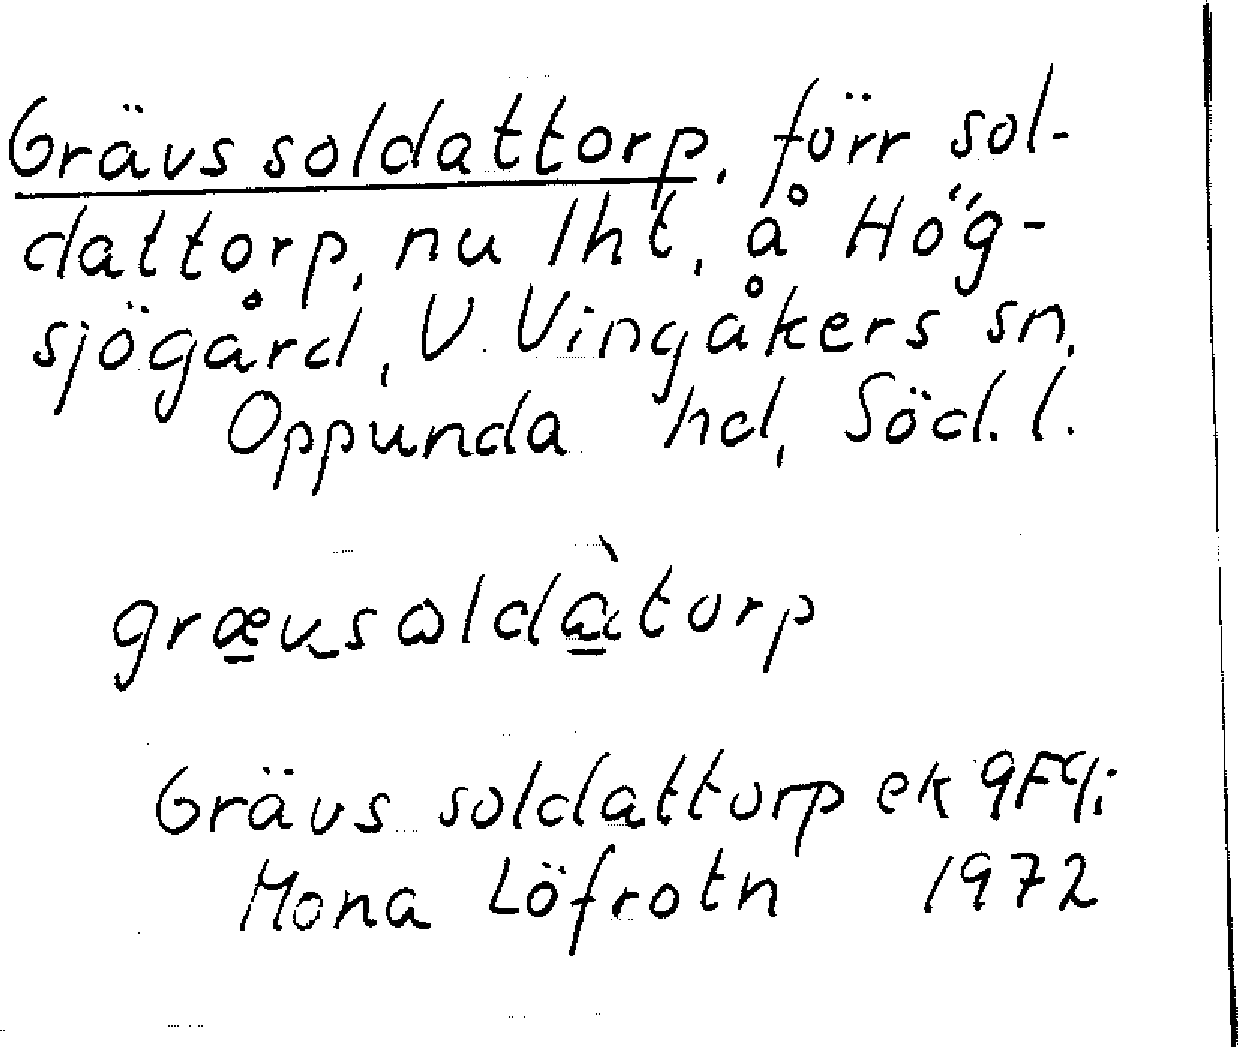 Grävs soldattorp, förr sol-
dattorp, nu lht, å Hög-
sjögård, V. Vingåkers sn,
Oppunda hd, Söd. l.
græv̠sɷldàtorp
Grävs soldattorp ek 9F9i
Mona Löfrotn 1972